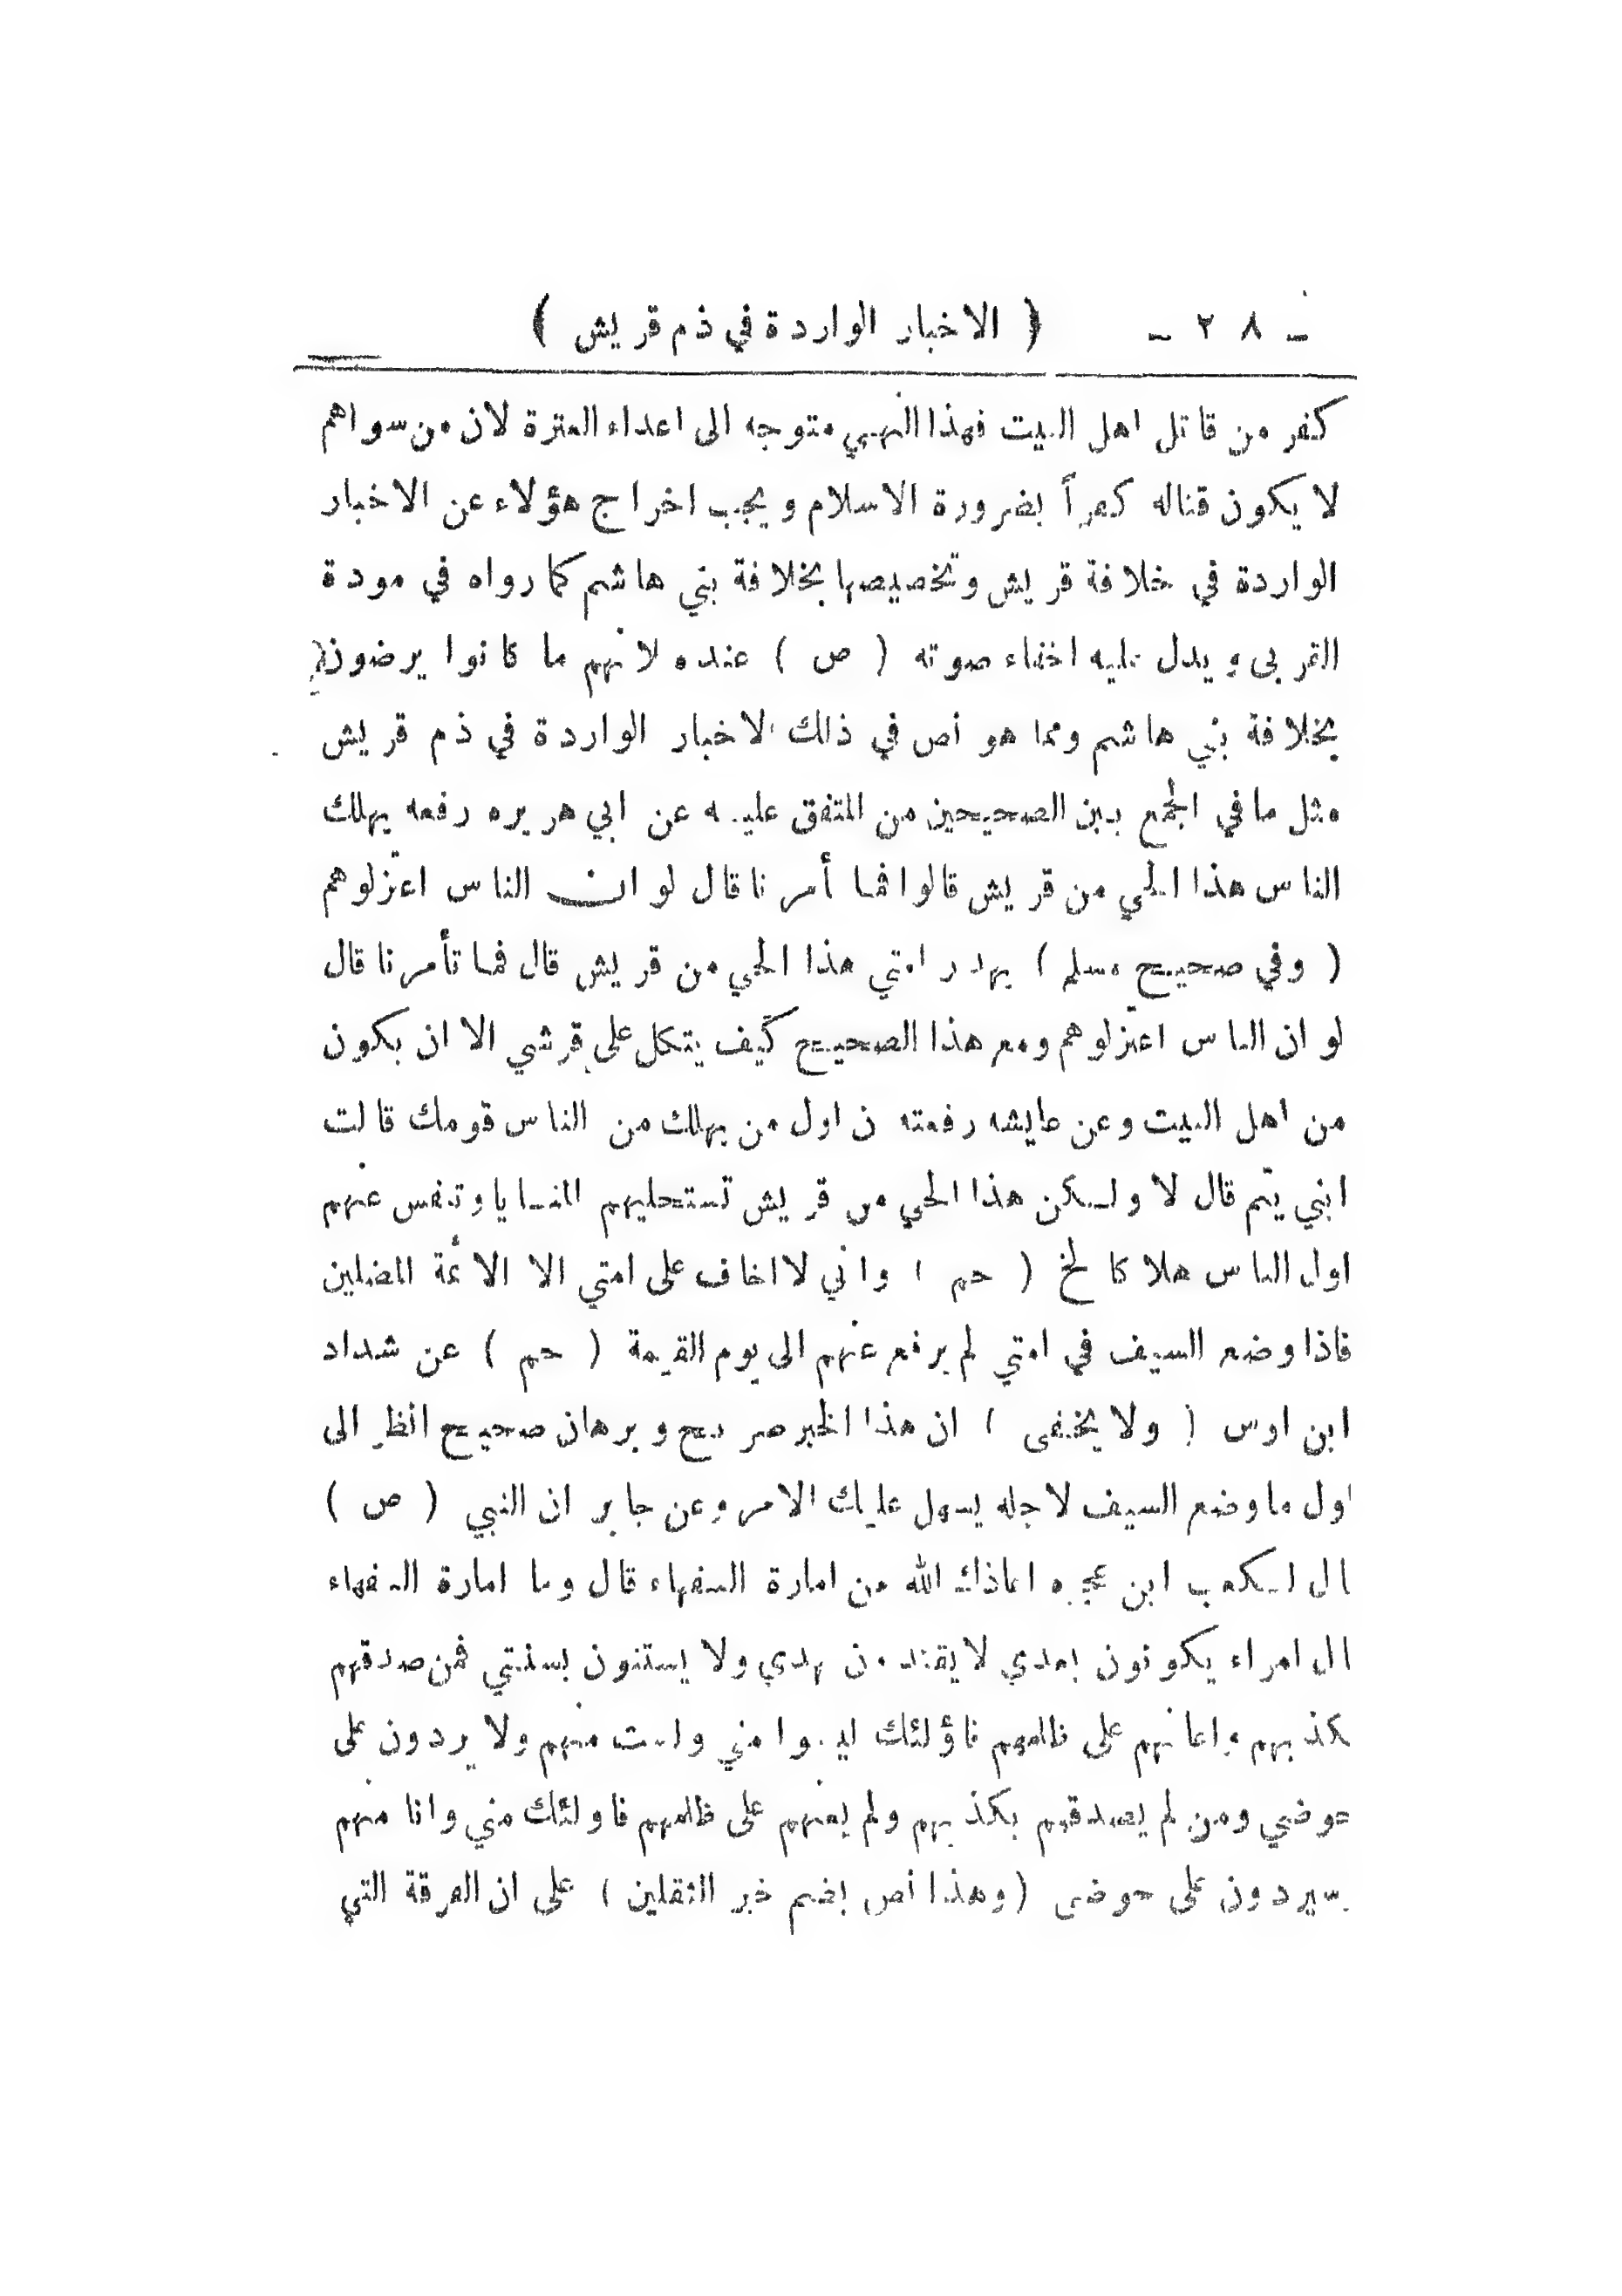 - ٢٨ - ( الاخبار الواردة في ذم قريش )
كفر من قاتل اهل البيت فهذا النهي متوجه الى اعداء العترة لان من سواهم
لا يكون قتاله كفراً بضرورة الاسلام ويجب اخراج هؤلاء عن الاخبار
الواردة في خلافة قريش وتخصيصها بخلافة بني هاشم كما رواه في مودة
القربى ويدل عليه اخفاء صوته ( ص ) عنده لانهم ما كانوا يرضون
بخلافة بني هاشم ومما هو نص في ذلك الاخبار الواردة في ذم قريش
مثل ما في الجمع بين الصحيحين من المتفق عليه عن ابي هريره رفعه يهلك
الناس هذا الحي من قريش قالوا فما أمرنا قال لو ان الناس اعتزلوهم
( وفي صحيح مسلم ) يهدر امتي هذا الحي من قريش قال فما تأمرنا قال
لو ان الناس اعتزلوهم ومع هذا الصحيح كيف يتكل على قرشي الا ان يكون
من اهل البيت وعن عايشه رفعته ن اول من يهلك من الناس قومك قالت
ابني يتم قال لا ولكن هذا الحي من قريش تستحليهم المنايا وتنفس عنهم
اول الناس هلاكا لخ ( حم ) واني لا اخاف على امتي الا الائمة المضلين
فاذا وضع السيف في امتي لم يرفع عنهم الى يوم القيمة ( حم ) عن شداد
ابن اوس ( ولا يخفى ) ان هذا الخبر صريح وبرهان صحيح انظر الى
اول ما وضع السيف لاجله يسهل عليك الامر وعن جابر ان النبي ( ص )
ال لكعب ابن عجره اعاذك الله من امارة السفهاء قال وما امارة السفهاء
ال امراء يكونون بعدي لا يقتدون بهدي ولا يستنون بسنتي فمن صدقهم
كذبهم واعانهم على ظلمهم فاؤلئك ليسوا مني ولست منهم ولا يردون على
حوضي ومن لم يصدقهم بكذبهم ولم يعنهم على ظلمهم فاولئك مني وانا منهم
سيردون على حوضى ( وهذا نص بضم خبر الثقلين ) على ان الفرقة التي